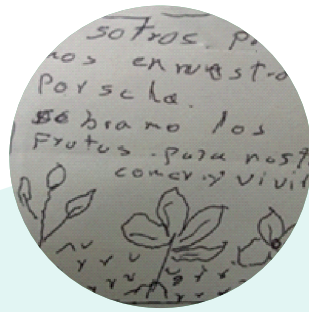 sotros p
nos en nuestro
Porsela.
Sebramo los
Frutus. para nost
comer y vivil